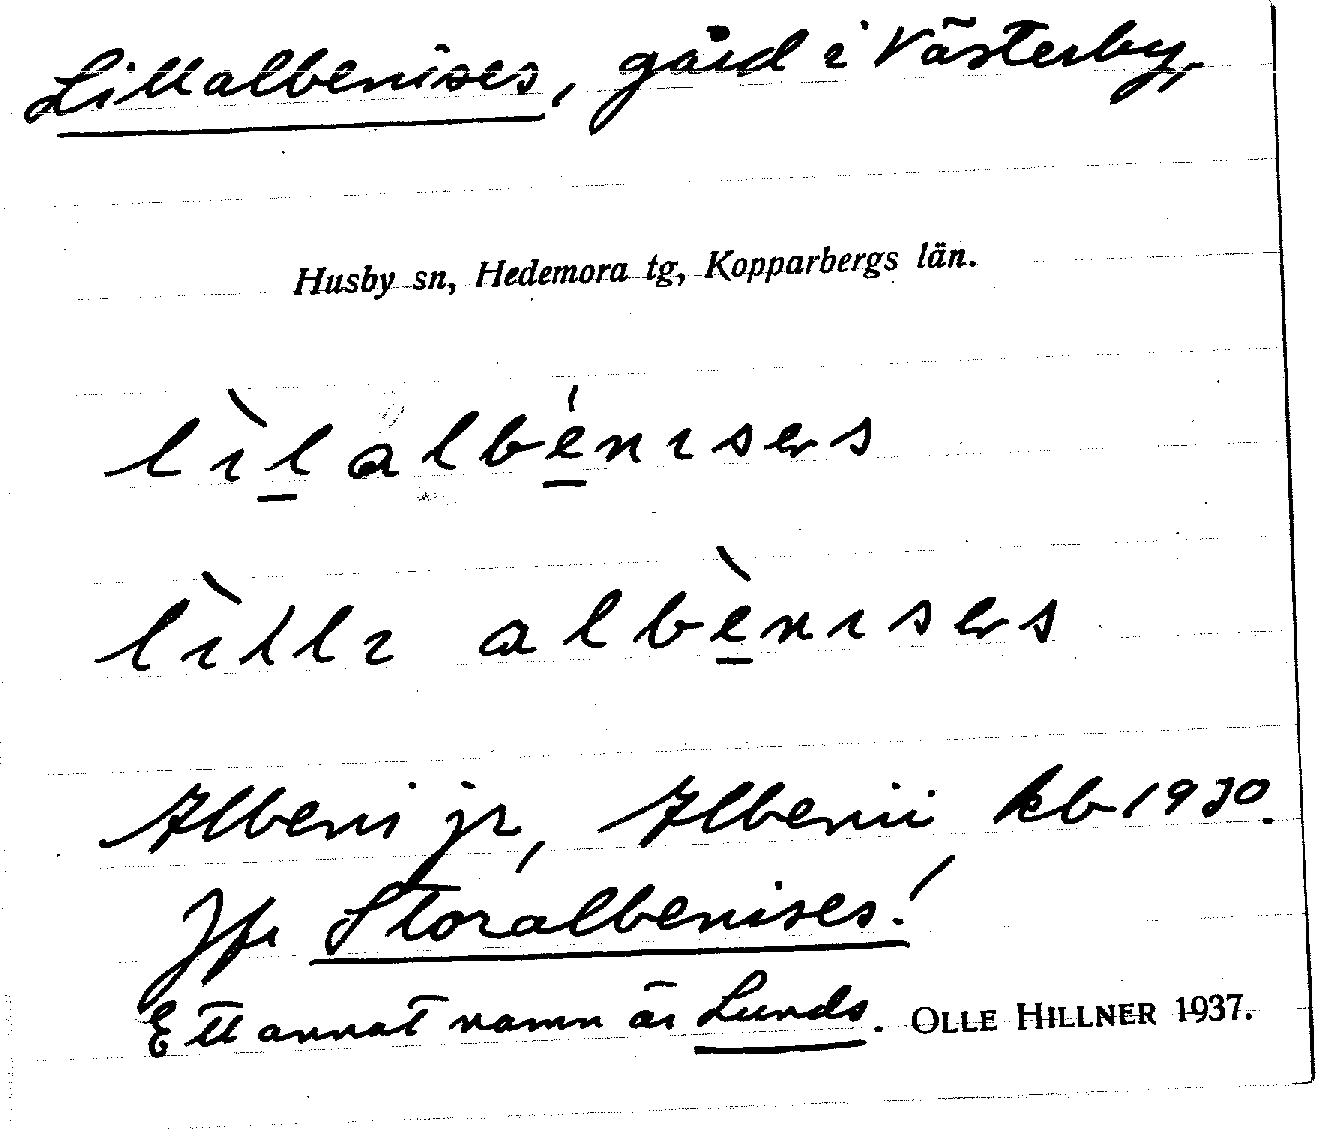 Lillalbenises, gård i Västerby,
Husby sn, Hedemora tg, Kopparbergs län.
lìlalbénisers
lìlli albènisers
Alberni jr, Albenii kb 1930.
Jfr Storalbenises!
Ett annat namn är Lunds. OLLE HILLNER 1937.